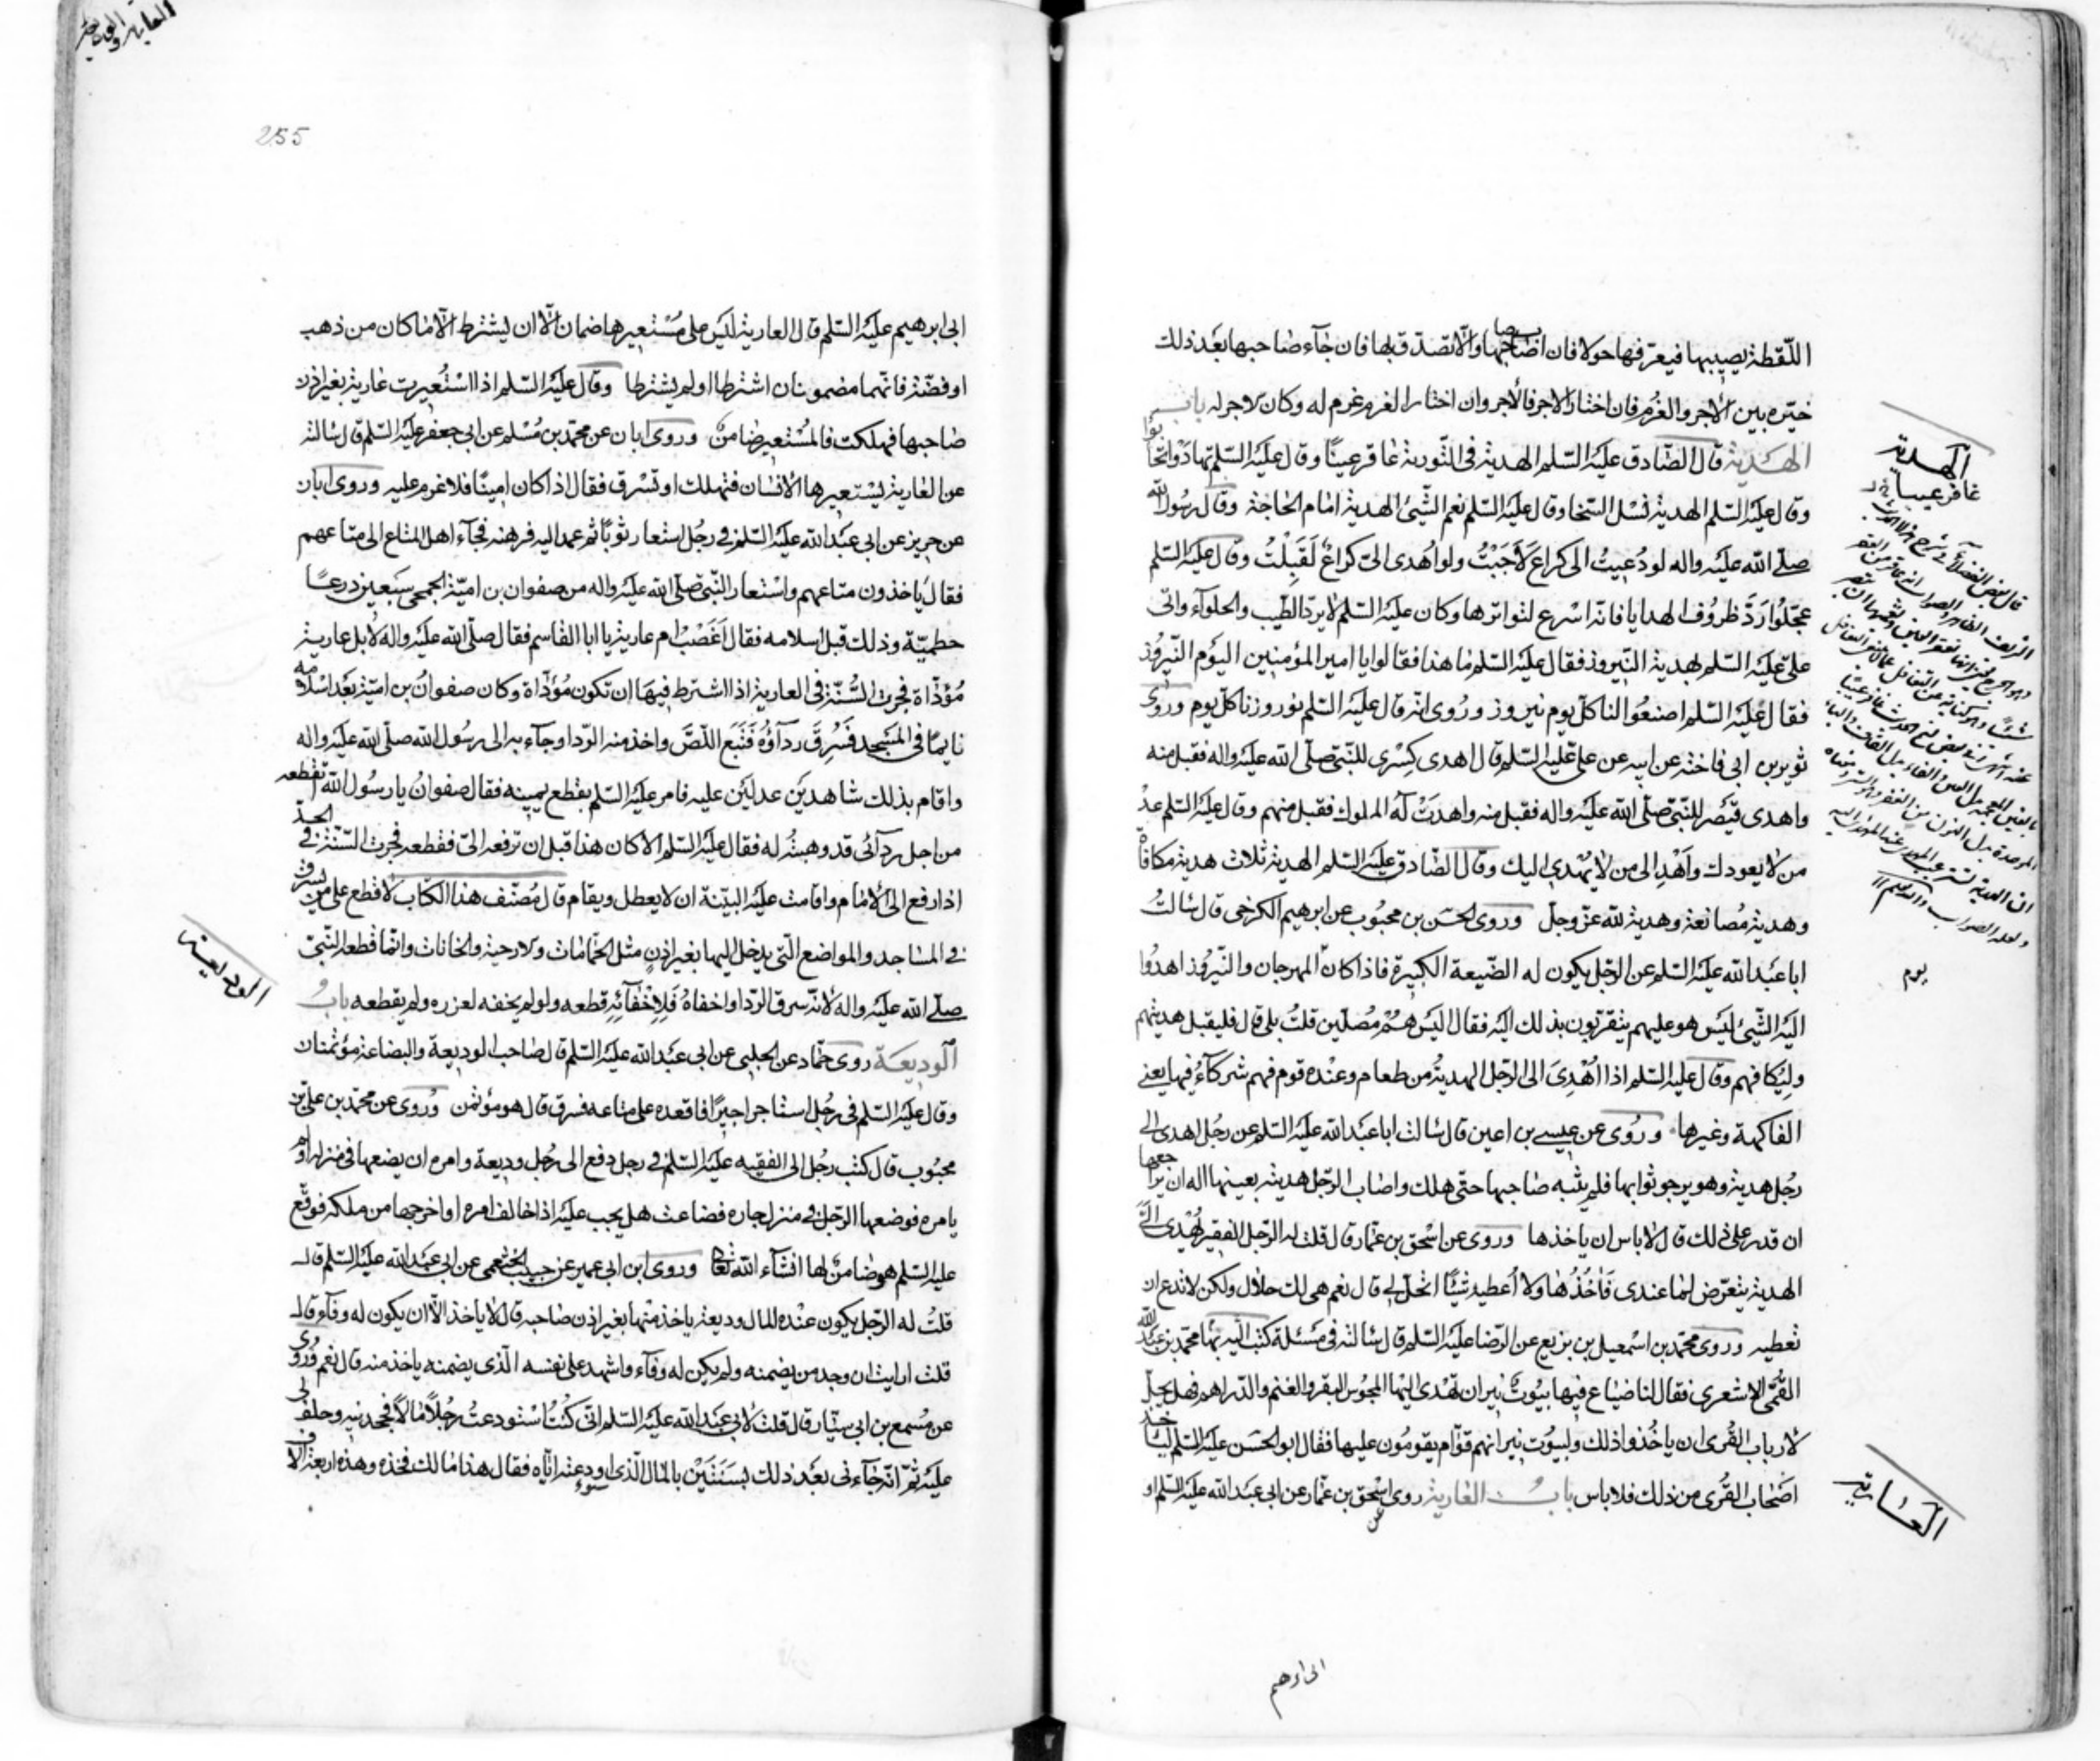 اللّقطة يصيبها فيعرّفها حولا فان اصاب صاحبها والّا تصدّق بها فان جآء صاحبها بعد ذلك
خيّره بين الاجر والغُرم فان اختار الاجر فالأجر وان اختار الغرم غرم له وكان الاجر له باب
الهديّة قال الصّادق عليه السّلم الهدية في التّورية غافر عيبًا وقال عليه السّلم تهادَوْا تحابّوا
وقال عليه السّلم الهدية تسل السّخا وقال عليه السّلم نعم الشّيئ الهدية امام الحاجة وقال رسُول الله
صلّى الله عليه واله لو دُعِيتُ الى كراع لَأَجَبْتُ ولو اُهدى الىّ كراعٌ لَقَبِلْتُ وقال عليه السّلم
عجّلُوا رَدَّ ظروُف الهدايا فانّه اسرع لتواترها وكان عليه السّلم لا يردّ الطّيب والحلوآء واتى
علىّ عليه السّلم بهدية النّيروز فقال عليه السّلم ما هذا فقالوا يا امير المؤمنين اليوُم النّيرُوز
فقال عليه السّلم اصنعُوا لنا كلّ يوم نيروز ورُوى انه قال عليه السّلم نوروزنا كلّ يوم وروى
ثوير بن ابى فاخته عن ابيه عن علىّ عليه السّلم قال اهدى كِسْرى للنّبىّ صلّى الله عليه واله فقبل منه
واهدى قيصَر للنّبىّ صلّى الله عليه واله فقبل منه واهدَتْ لَهُ الملوك فقبل منهم وقال عليه السّلم عدْ
من لا يعودك واَهْدِ الى من لا يُهْدى اليك وقال الصّادق عليه السّلم الهدية ثلاث هدية مكافاة
وهدية مُصانعة وهدية لله عزّ وجلّ وروى الحسَن بن محبُوب عن ابرهيم الكرخى قال سَالتُ
ابا عبد الله عليه السّلم عن الرّجل يكون له الضّيعة الكبيرة فاذا كان المهرجان والنّيرُوز اهدوُا
اليه الشّيئ ليَس هو عليهم يتقرّبون بذلك اليه فقال اليَس هُمْ مُصلّين قلتُ بلى قال فليقبل هديتهم
وليُكافهم وقال عليه السّلم اذا اُهْدِىَ الى الرّجل الهديةُ من طعام وعنْده قوم فهم شركآءُ فيها يعنى
الفاكهة وغيرها وروُى عن عيسى بن اعين قال سَالت ابا عبَد الله عليه السّلم عن رجُل اهدى الى
رجُل هدية وهو يرجو ثوابها فلم يثبه صَاحبها حتى هلك واصَاب الرّجل هديته بعينها اله ان يراجعها
ان قدر على ذلك قال لا باس ان ياخذها وروى عن اسْحق بن عمّار قال قلت له الرّجل الفقير يُهْدى الىّ
الهدية يتعرّض لما عندى فَآخُذُها ولا اُعطيه شيئًا اتحلّ لى قال نعم هى لك حلال ولكن لا تدع ان
تعطيه وروى محمّد بن اسْمعيل بن بزيع عن الرّضا عليه السّلم قال سَالته فى مَسْئلة كتب اليه بها محمّد بن عبد الله
القُمّى الاشعرى فقال لنا ضيَاع فيها بيُوت نيران تهْدى اليَها المجُوس البقر والغنم والدّراهم فهل يحلّ
لارباب القُرى ان ياخُذوا ذلك ولبيُوت نيرانهم قوّام يقومُون عليها فقال ابو الحسَن عليه السّلم ليَاخذ
اصَحاب القُرى من ذلك فلا باس بابُ العارية روى اسْحق بن عمّار عن ابى عبَد الله عليه السّلم او
عن
الهدية
غافر عيبا
العارية
ابى ابرهيم
255
ابى ابرهيم عليه السّلم قال العارية ليَس على مُسْتعيرها ضمان الّا ان يشترط الّا ما كان من ذهب
او فضّة فانّهما مضمونان اشترطا او لم يشترطا وقال عليه السّلم اذا اسْتُعيرت عارية بغير اذن
صَاحبها فهلكت فالمسُتْعير ضَامنٌ وروى ابان عن محمّد بن مُسْلم عن ابى جعفر عليه السّلم قال سَالته
عن العارية يسْتعيرها الانسان فتهلك او تسْرق فقال اذا كان امينًا فلا غرم عليه وروى ابان
عن حريز عن ابى عبَد الله عليه السّلم فى رجُل استعار ثوبًا ثم عمد اليه فرهنه فجآء اهل المتاع الى متاعهم
فقال يَاخذون متاعهم واسْتعار النّبى صلّى الله عليه واله من صفوان بن اميّة الجمحى سبَعين درعًا
حطميّة وذلك قبل اسلامه فقال اَغَصْبٌ ام عارية يا ابا القاسم فقال صلّى الله عليه واله لا بل عارية
مُؤدّاة فجرت السُّنّة فى العارية اذا اشترط فيهَا ان تكون مُؤدّاة وكان صفوانُ بن اميّة بَعْد اسْلامه
نايمًا فى المسَجد فسُرِقَ ردآؤُهُ فتَبِعَ اللّصَّ واخذ منه الرّدا وجآء به الى رسُول الله صلّى الله عليه واله
واقام بذلك شاهديَن عدليَن عليه فامر عليه السّلم بقطع يمينه فقال صفوانُ يا رسُول الله اتقطعه
من اجل ردآئى قد وهبتُه له فقال عليه السّلم الا كان هذا قبل ان ترفعه الىّ فقطعه فجرت السّنّة فى الحدّ
اذا رفع الى الامَام واقامت عليه البيّنة ان لا يعطل ويقام قال مُصنّف هذا الكتاب لا قطع على من يسرق
فى المسَاجد والمواضع الّتى يدخل اليها بغير اذنٍ مثل الحمّامات والارحية والخانات وانّما قطعه النّبىّ
صلّى الله عليه واله لانّه سرق الرّدا واخفاهُ فَلِاِخْفائِه قطعه ولو لم يخفه لعزره ولم يقطعه بابُ
الوديعة روى حمّاد عن الحلبى عن ابى عبَد الله عليه السّلم قال صَاحب الوديعة والبضاعة مؤتمنان
وقال عليه السّلم فى رجُل استاجر اجيرًا فاقعده على متاعه فسرق قال هو مؤتمن وروُى عن محمّد بن علىّ بن
محبُوب قال كتب رجُل الى الفقيه عليه السّلم فى رجل دفع الى رجُل وديعة وامره ان يضعها فى منزله او لم
يامره فوضعها الرّجل فى منزل جاره فضاعت هل يجب عليه اذا خالف امره او اخرجها من ملكه فوقّع
عليه السّلم هو ضَامنٌ لها انشآء الله تعالى وروى ابن ابى عمير عن حبيب الخثعمى عن ابى عبد الله عليه السّلم قال
قلتُ له الرّجل يكون عنْده المال وديعة ياخذ منْها بغير اذن صَاحبه قال لا ياخذ الّا ان يكون له وفآء قال
قلت ارايت ان وجد من يضمنه ولم يكن له وفآء واشهد على نفسه الّذى يضمنه ياخذ منه قال نعم وروُى
عن مُسْمع بن ابى سيّار قال قلت لابى عبَد الله عليه السّلم انّى كنْتُ اسْتودعتُ رجُلًا مالًا فجحدنيه وحلف لى
عليه ثمّ انّه جآءنى بعَد ذلك بسَنتيَن بالمال الّذى اودعته ايّاه فقال هذا مالك فخذه وهذه اربعة الاف
الوديعة